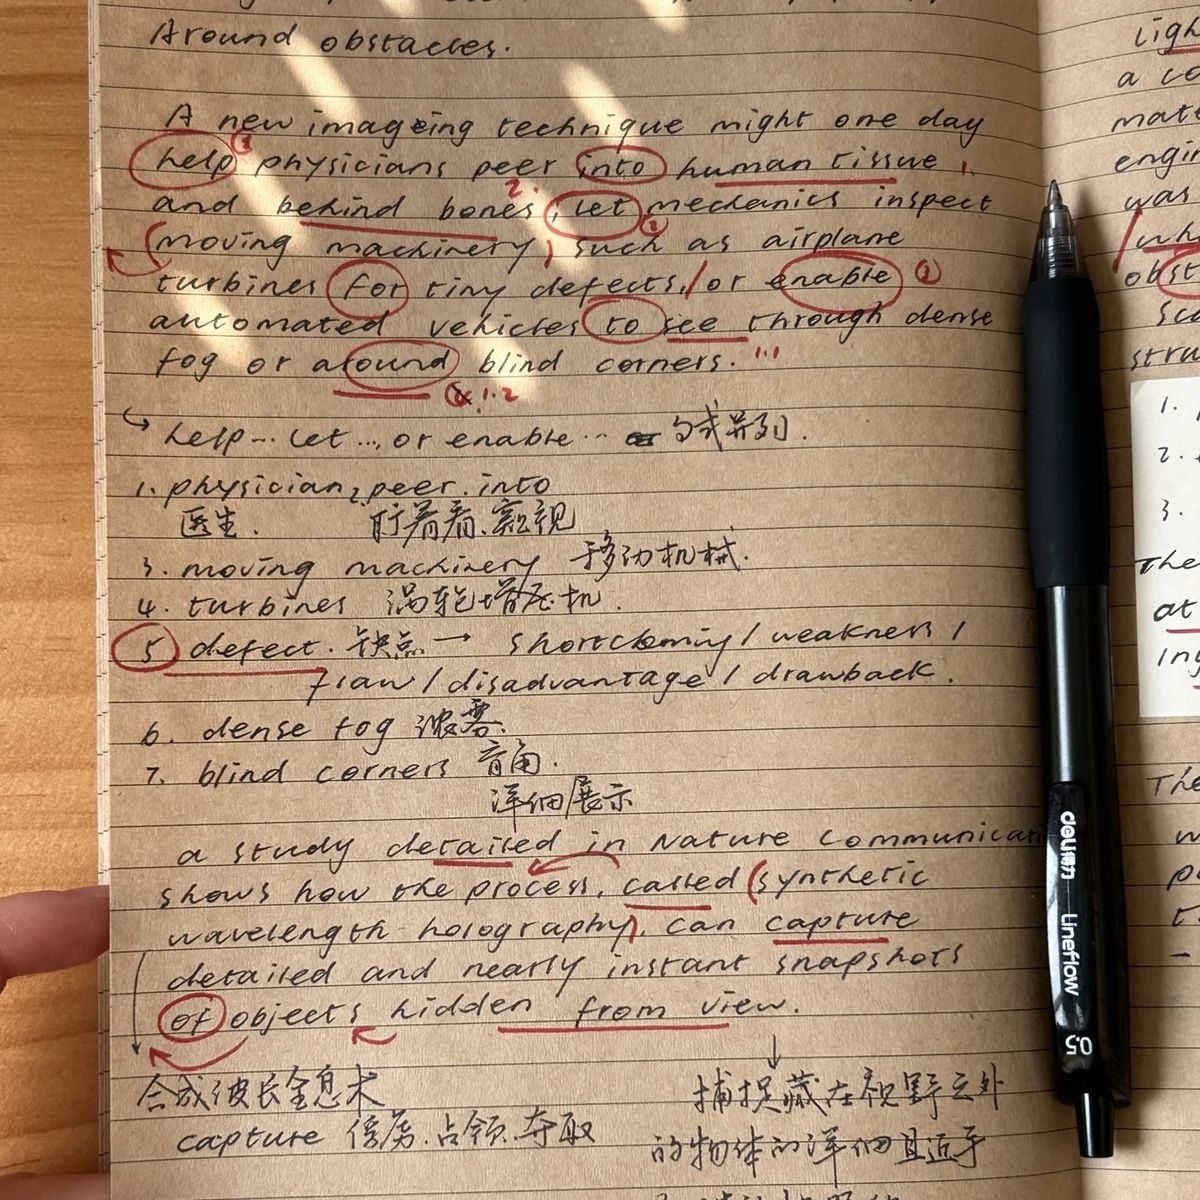 Around obstacles.
A new imageing technique might one day
help physicians peer into human tissue
and behind bones, let mechanics inspect
moving machinery, such as airplane
turbines for tiny defects, or enable
automated vehicles to see through dense
fog or around blind corners.
help... let ..., or enable... 句式并列.
1. physician 2 peer into
医生. 盯着看.窥视
3. moving machinery 移动机械.
4. turbines 涡轮增压机.
5 defect. 缺点 → shortcoming / weakness /
flaw / disadvantage / drawback.
6. dense fog 浓雾.
7. blind corners 盲角.
详细展示
a study detailed in Nature Communicati
shows how the process, called (synthetic
wavelength holography), can capture
detailed and nearly instant snapshots
of objects hidden from view.
合成波长全息术
capture 俘虏.占领.夺取
捕捉藏在视野之外
的物体的详细且近乎
ligh
a co
mate
engin
was
obst
sca
stru
1.
2.
3.
The
at
ing
The
w
p
t
deli得力 Lineflow 0.5